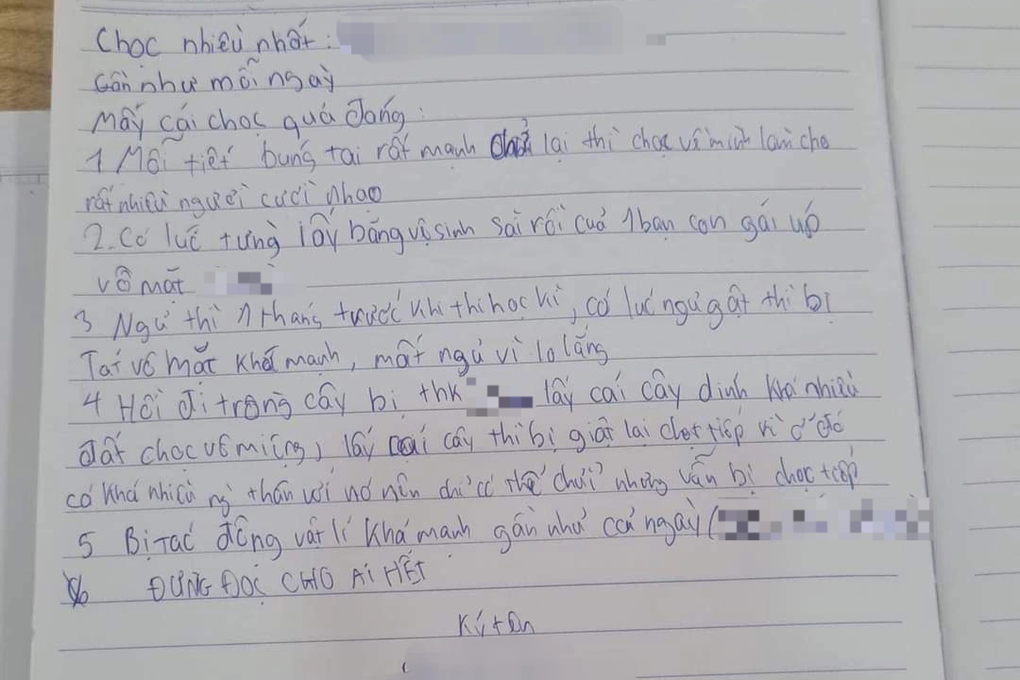 Chọc nhiều nhất:
Gần như mỗi ngày
Mấy cái chọc quá đáng:
1 Mỗi tiết búng tai rất mạnh lại thì chọc về mình làm cho
rất nhiều người cười nhạo
2. Có lúc từng lấy băng vệ sinh sài rồi của 1 bạn con gái úp
vô mặt
3 Ngủ thì 1 tháng trước khi thi học kì, có lúc ngủ gật thì bị
Tát vô mặt khá mạnh, mất ngủ vì lo lắng
4 Hồi đi trồng cây bị thk lấy cái cây dính khá nhiều
đất chọc vô miệng, lấy cái cây thì bị giật lại chọt tiếp vì ở đó
có khá nhiều ng thân với nó nên chỉ có thể chửi nhưng vẫn bị chọc tiếp
5 Bị tác động vật lí khá mạnh gần như cả ngày (
6 ĐỪNG ĐỌC CHO AI HẾT
Ký tên